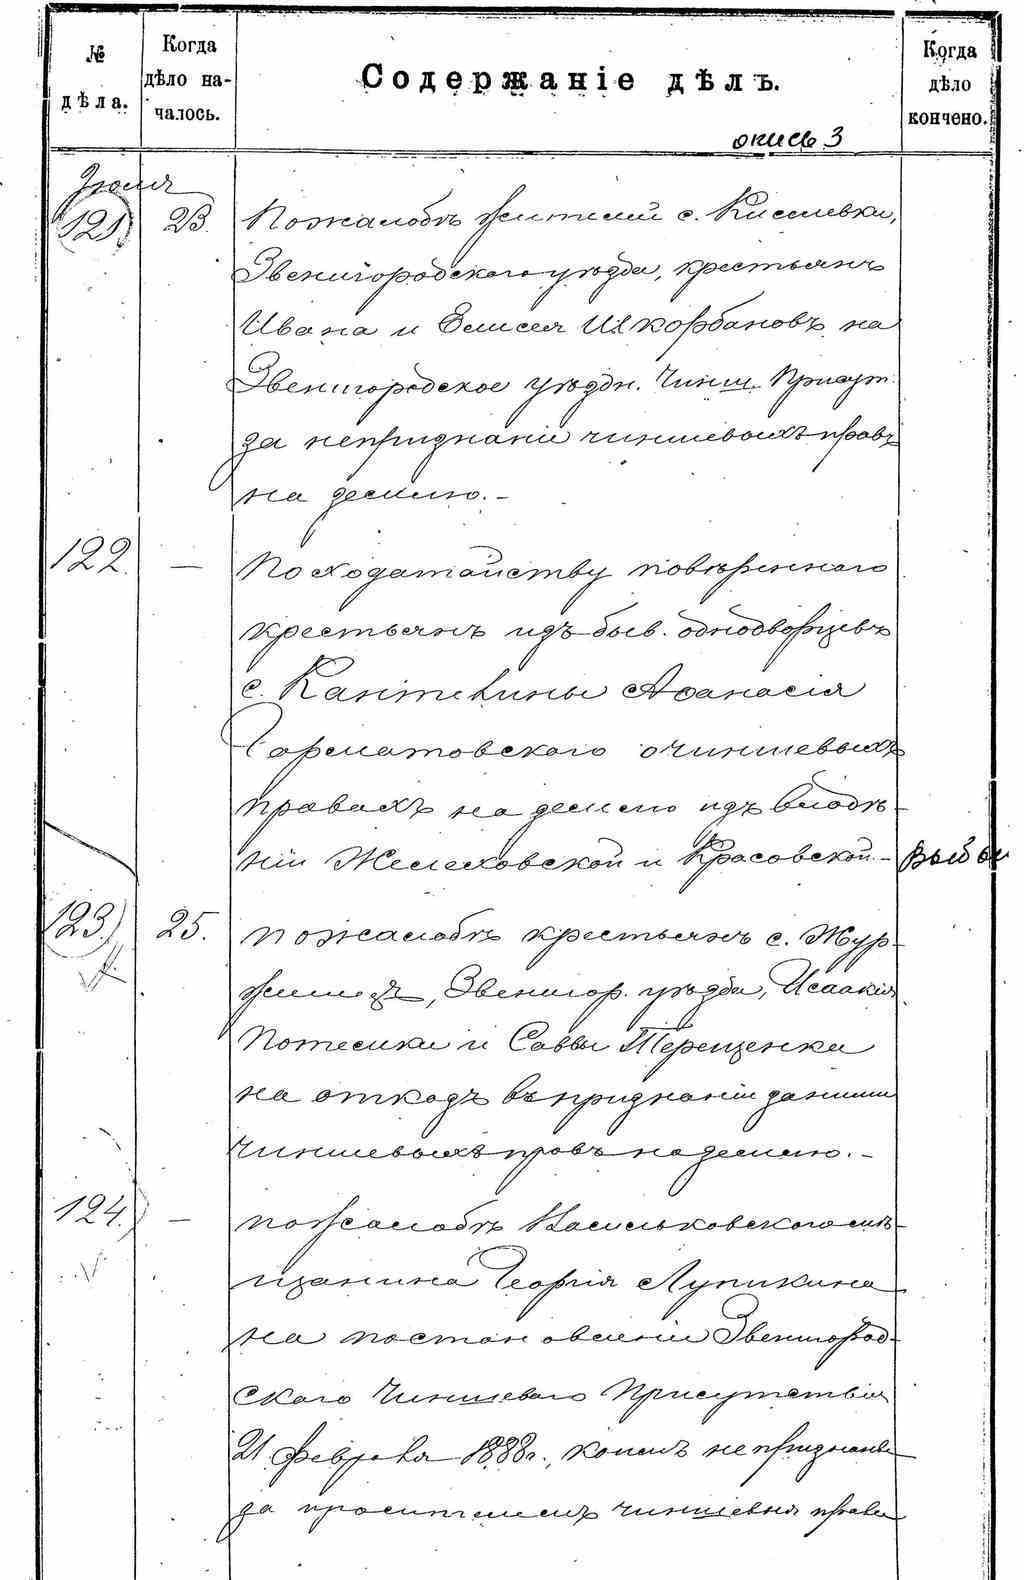 № дѣла.
Когда дѣло на-чалось.
Содержаніе дѣлъ.
Когда дѣло кончено.
опись 3
Іюля
121 23. По жалобѣ жителей с. Киселевки,
Звенигородскаго уѣзда, крестьянъ
Ивана и Елисея Шкорбановъ на
Звенигородское уѣздн. Чинш. Присут.
за непризнаніе чиншевыхъ правъ
на землю.-
122. — По ходатайству повѣреннаго
крестьянъ изъ быв. однодворцевъ
с. Афанасія
о чиншевыхъ
правахъ на землю изъ владѣ-
ній Желеховской и Красовской.-
123. 25. По жалобѣ крестьянъ с. Жур-
жинецъ, Звениг. уѣзда, Исаакія
и Саввы Терещенка
на отказъ въ признаніи за ними
чиншевыхъ правъ на землю.-
124. — по жалобѣ Васильковскаго мѣ-
щанина Георгія Лупикина
на постановленіе Звенигород-
скаго Чиншеваго Присутствія
21 февраля 1888 г., коимъ не признаны
за просителемъ чиншевыя права